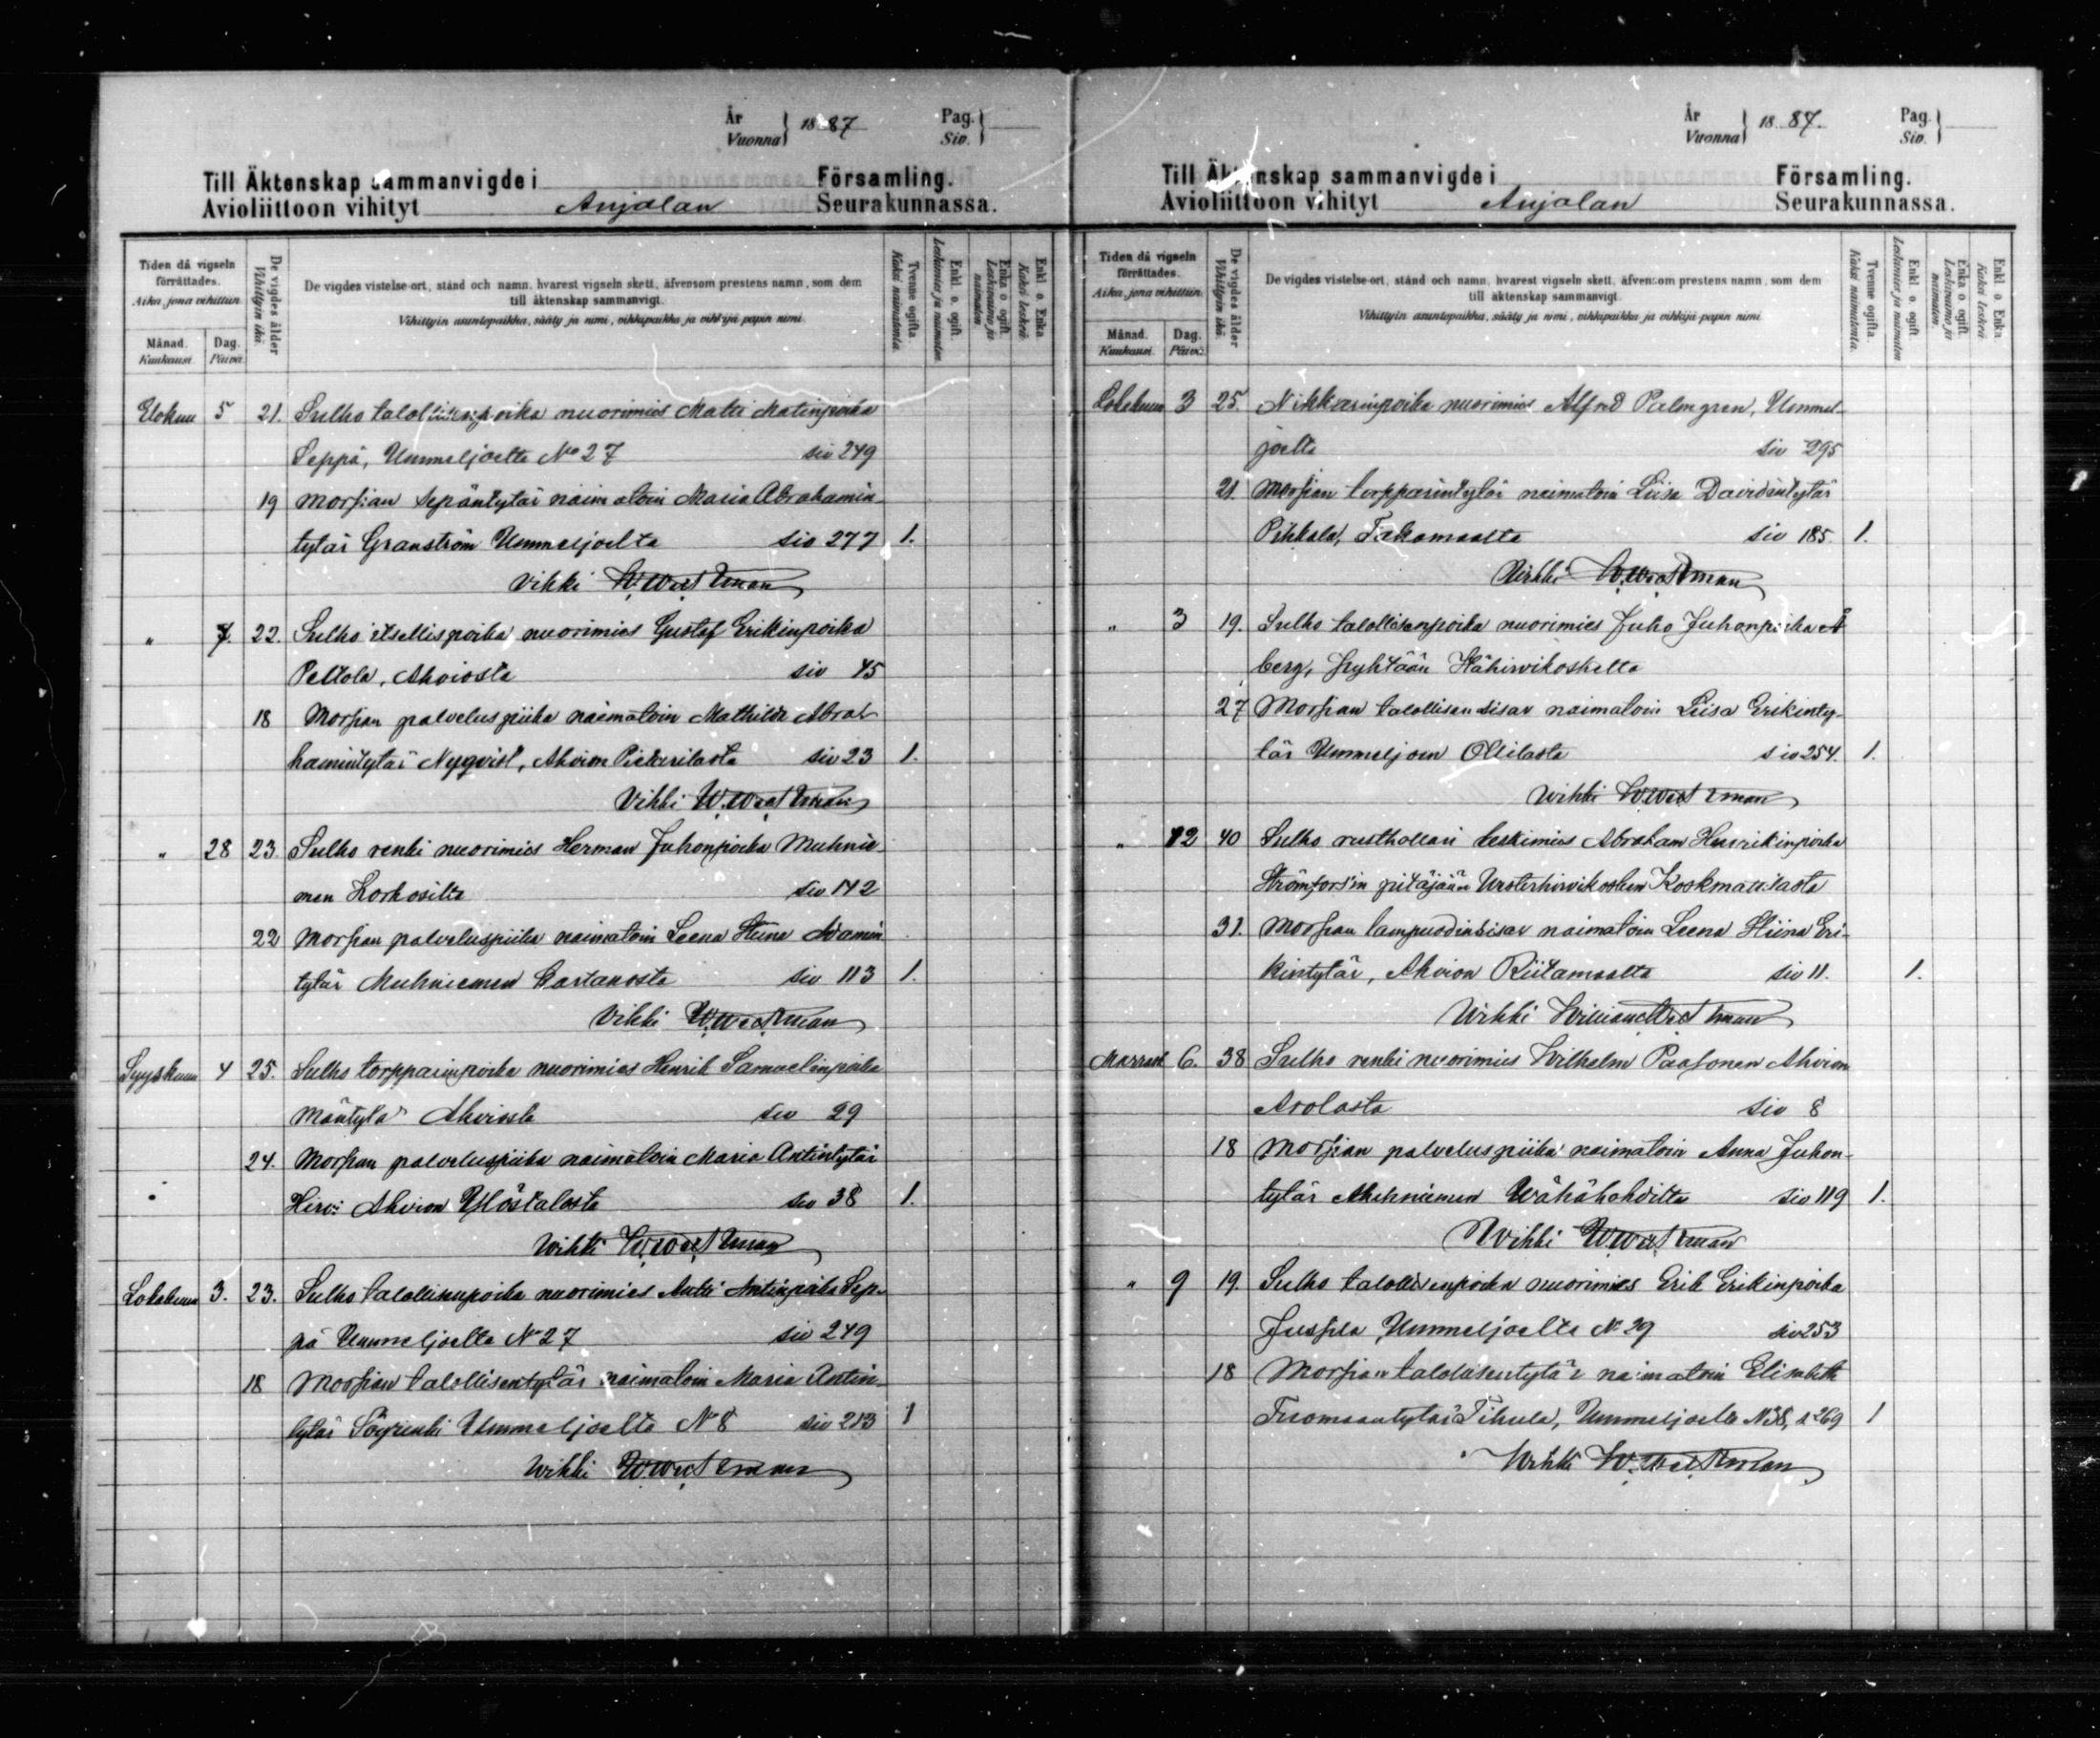 År
Vuonna } 1887
Pag.
Siv. }
Till Äktenskap sammanvigde i Församling.
Avioliittoon vihityt Anjalan Seurakunnassa.
Tiden då vigseln förrättades.
Aika, jona vihittiin
Månad. Kuukausi. Dag. Päivä.
De vigdes ålder Vihittyin ikä.
De vigdes vistelse-ort, stånd och namn, hvarest vigseln skett, äfvensom prestens namn, som dem
till äktenskap sammanvigt.
Vihittyin asuntopaikka, sääty ja nimi, vihkipaikka ja vihkijä-papin nimi.
Tvenne ogifta. Kaksi naimatonta.
Enkl. o. ogift. Leskimies ja naimaton.
Enka o. ogift. Leskivaimo ja naimaton.
Enkl. o. Enka. Kaksi leskeä.
Elokuu 5 21. Sulho talollisenpoika nuorimies Matti Matinpoika
Seppä, Ummeljoelta No 27 siv 249
19 Morsian Sepäntytär naimatoin Maria Abrahamin-
tytär Granström Ummeljoelta siv 277 1.
Vihki W. Westman
" 7. 22. Sulho itsellispoika nuorimies Gustaf Erikinpoika
Peltola, Ahviosta siv 45
18 Morsian palveluspiika naimatoin Mathilda Abra-
hamintytär Nyqvist, Ahvion siv 23 1.
Vihki W. Westman
" 28 23. Sulho renki nuorimies Herman Juhonpoika Muhnie-
men siv 142
22 Morsian palveluspiika naimatoin Leena Stiina Adamin
tytär Muhniemen Kartanosta siv 113 1.
Vihki W. Westman
Syyskuu 4 25. Sulho torpparinpoika nuorimies Henrik Samuelinpoika
Mäntylä Ahviosta siv 29
24. Morsian palveluspiika naimatoin Maria Antintytär
Hirvi Ahvion Yllöstalosta siv 38 1.
Wihki W. Westman
Lokakuu 3. 23. Sulho talollisenpoika nuorimies Antti Antinpoika Sep-
pä Ummeljoelta No 27 siv 249
18 Morsian talollisentytär naimatoin Maria Antin-
tytär Ummeljoelta No 8 siv 213 1
Wihki W. Westman
År
Vuonna } 1887.
Pag.
Siv. }
Till Äktenskap sammanvigde i Församling.
Avioliittoon vihityt Anjalan Seurakunnassa.
Tiden då vigseln förrättades.
Aika, jona vihittiin.
Månad. Kuukausi. Dag. Päivä.
De vigdes ålder Vihittyin ikä.
De vigdes vistelse-ort, stånd och namn, hvarest vigseln skett, äfvensom prestens namn, som dem
till äktenskap sammanvigt.
Vihittyin asuntopaikka, sääty ja nimi, vihkipaikka ja vihkijä-papin nimi.
Tvenne ogifta. Kaksi naimatonta.
Enkl. o. ogift. Leskimies ja naimaton.
Enka o. ogift. Leskivaimo ja naimaton.
Enkl. o. Enka. Kaksi leskeä.
Lokakuu 3 25. Nikkarinpoika nuorimies Alfred Palmgren, Ummel-
joelta siv 295
21. Morsian torpparintytär naimatoin Liisa Davidintytär
Pihkala, Takamaalta siv 185. 1.
Vihki W. Westman
" 3 19. Sulho talollisenpoika nuorimies Juho Juhonpoika Å
berg, Pyhtään
27 Morsian talollisen sisar naimatoin Liisa Erikinty-
tär Ummeljoen Ollilasta siv 254. 1.
Wihki W. Westman
" 12 40 Sulho rusthollari leskimies Abraham Henrikinpoika
Strömforsin pitäjään
31. Morsian lampuodin sisar naimatoin Leena Stiina Eri-
kintytär, Ahvion Riitamaalta siv 11. 1.
Wihki William Westman
Marrask 6. 38 Sulho renki nuorimies Wilhelm Paasonen Ahvion
Arolasta siv 8
18 Morsian palveluspiika naimatoin Anna Juhon-
tytär Muhniemen siv 119 1.
Wihki W. Westman
" 9 19. Sulho talollisenpoika nuorimies Erik Erikinpoika
Ummeljoelta No 29 siv 253
18 Morsian talollisentytär naimatoin Elisabeth
Tuomaantytär Tihula, Ummeljoelta No 38, s 269 1
Wihki W. Westman